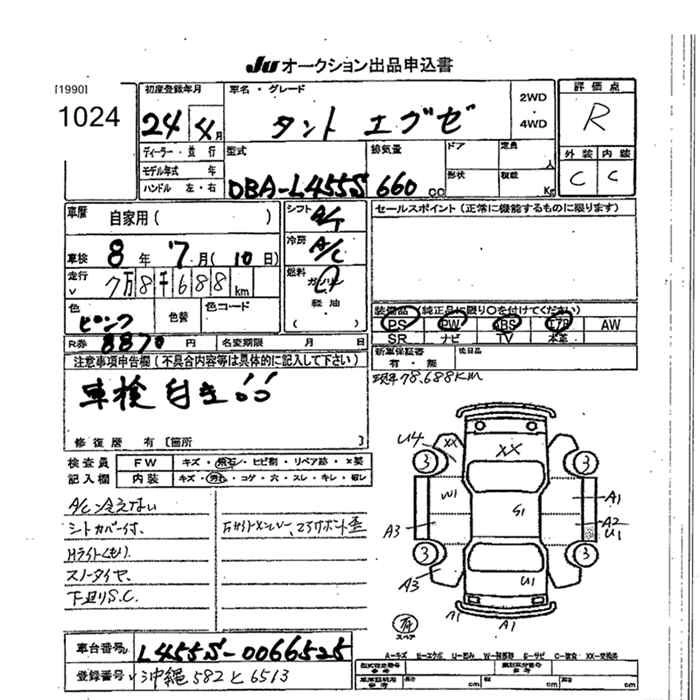 JU オークション出品申込書
[1990]
1024
初度登録年月
24年4月
車名・グレード
タント エグゼ
2WD・4WD
評価点
R
外装 内装
C C
ディーラー・並行
モデル年式 年
ハンドル 左・右
型式
DBA-L455S
排気量
660 cc
ドア
定員 人
形状
積載 Kg
車歴 自家用( )
車検 8年7月(10日)
走行 7万8千688km
色 ピンク
色替
色コード
シフト A/T
冷房 A/C
燃料 ガソリン
軽油
( )
セールスポイント(正常に機能するものに限ります)
装備品(純正品に限り○を付けてください)
PS PW ABS エアB AW
SR ナビ TV 本革
R券 8870円 名変期限 月 日
新車保証書 有・無
後日品
注意事項申告欄(不具合内容等は具体的に記入して下さい)
車検付き!!
現車78,688KM
修復歴 有[箇所 ]
検査員記入欄
FW キズ・飛石・ヒビ割・リペア跡・×要
内装 キズ・汚れ・コゲ・穴・スレ・キレ・破レ
A/C冷えない
シートカバー付
Hライトくもり
スノータイヤ
下廻りS.C.
U4 XX XX
3 3
W1 G1 A1
A3 A2
U1
3 3
A3 U1
A1 A1
スペア
A-キズ E-エクボ U-凹み W-補修跡 S-サビ C-腐食 XX-交換済
車台番号 L455S-0066525
登録番号 沖縄582と6513
長さ cm 幅 cm 高さ cm